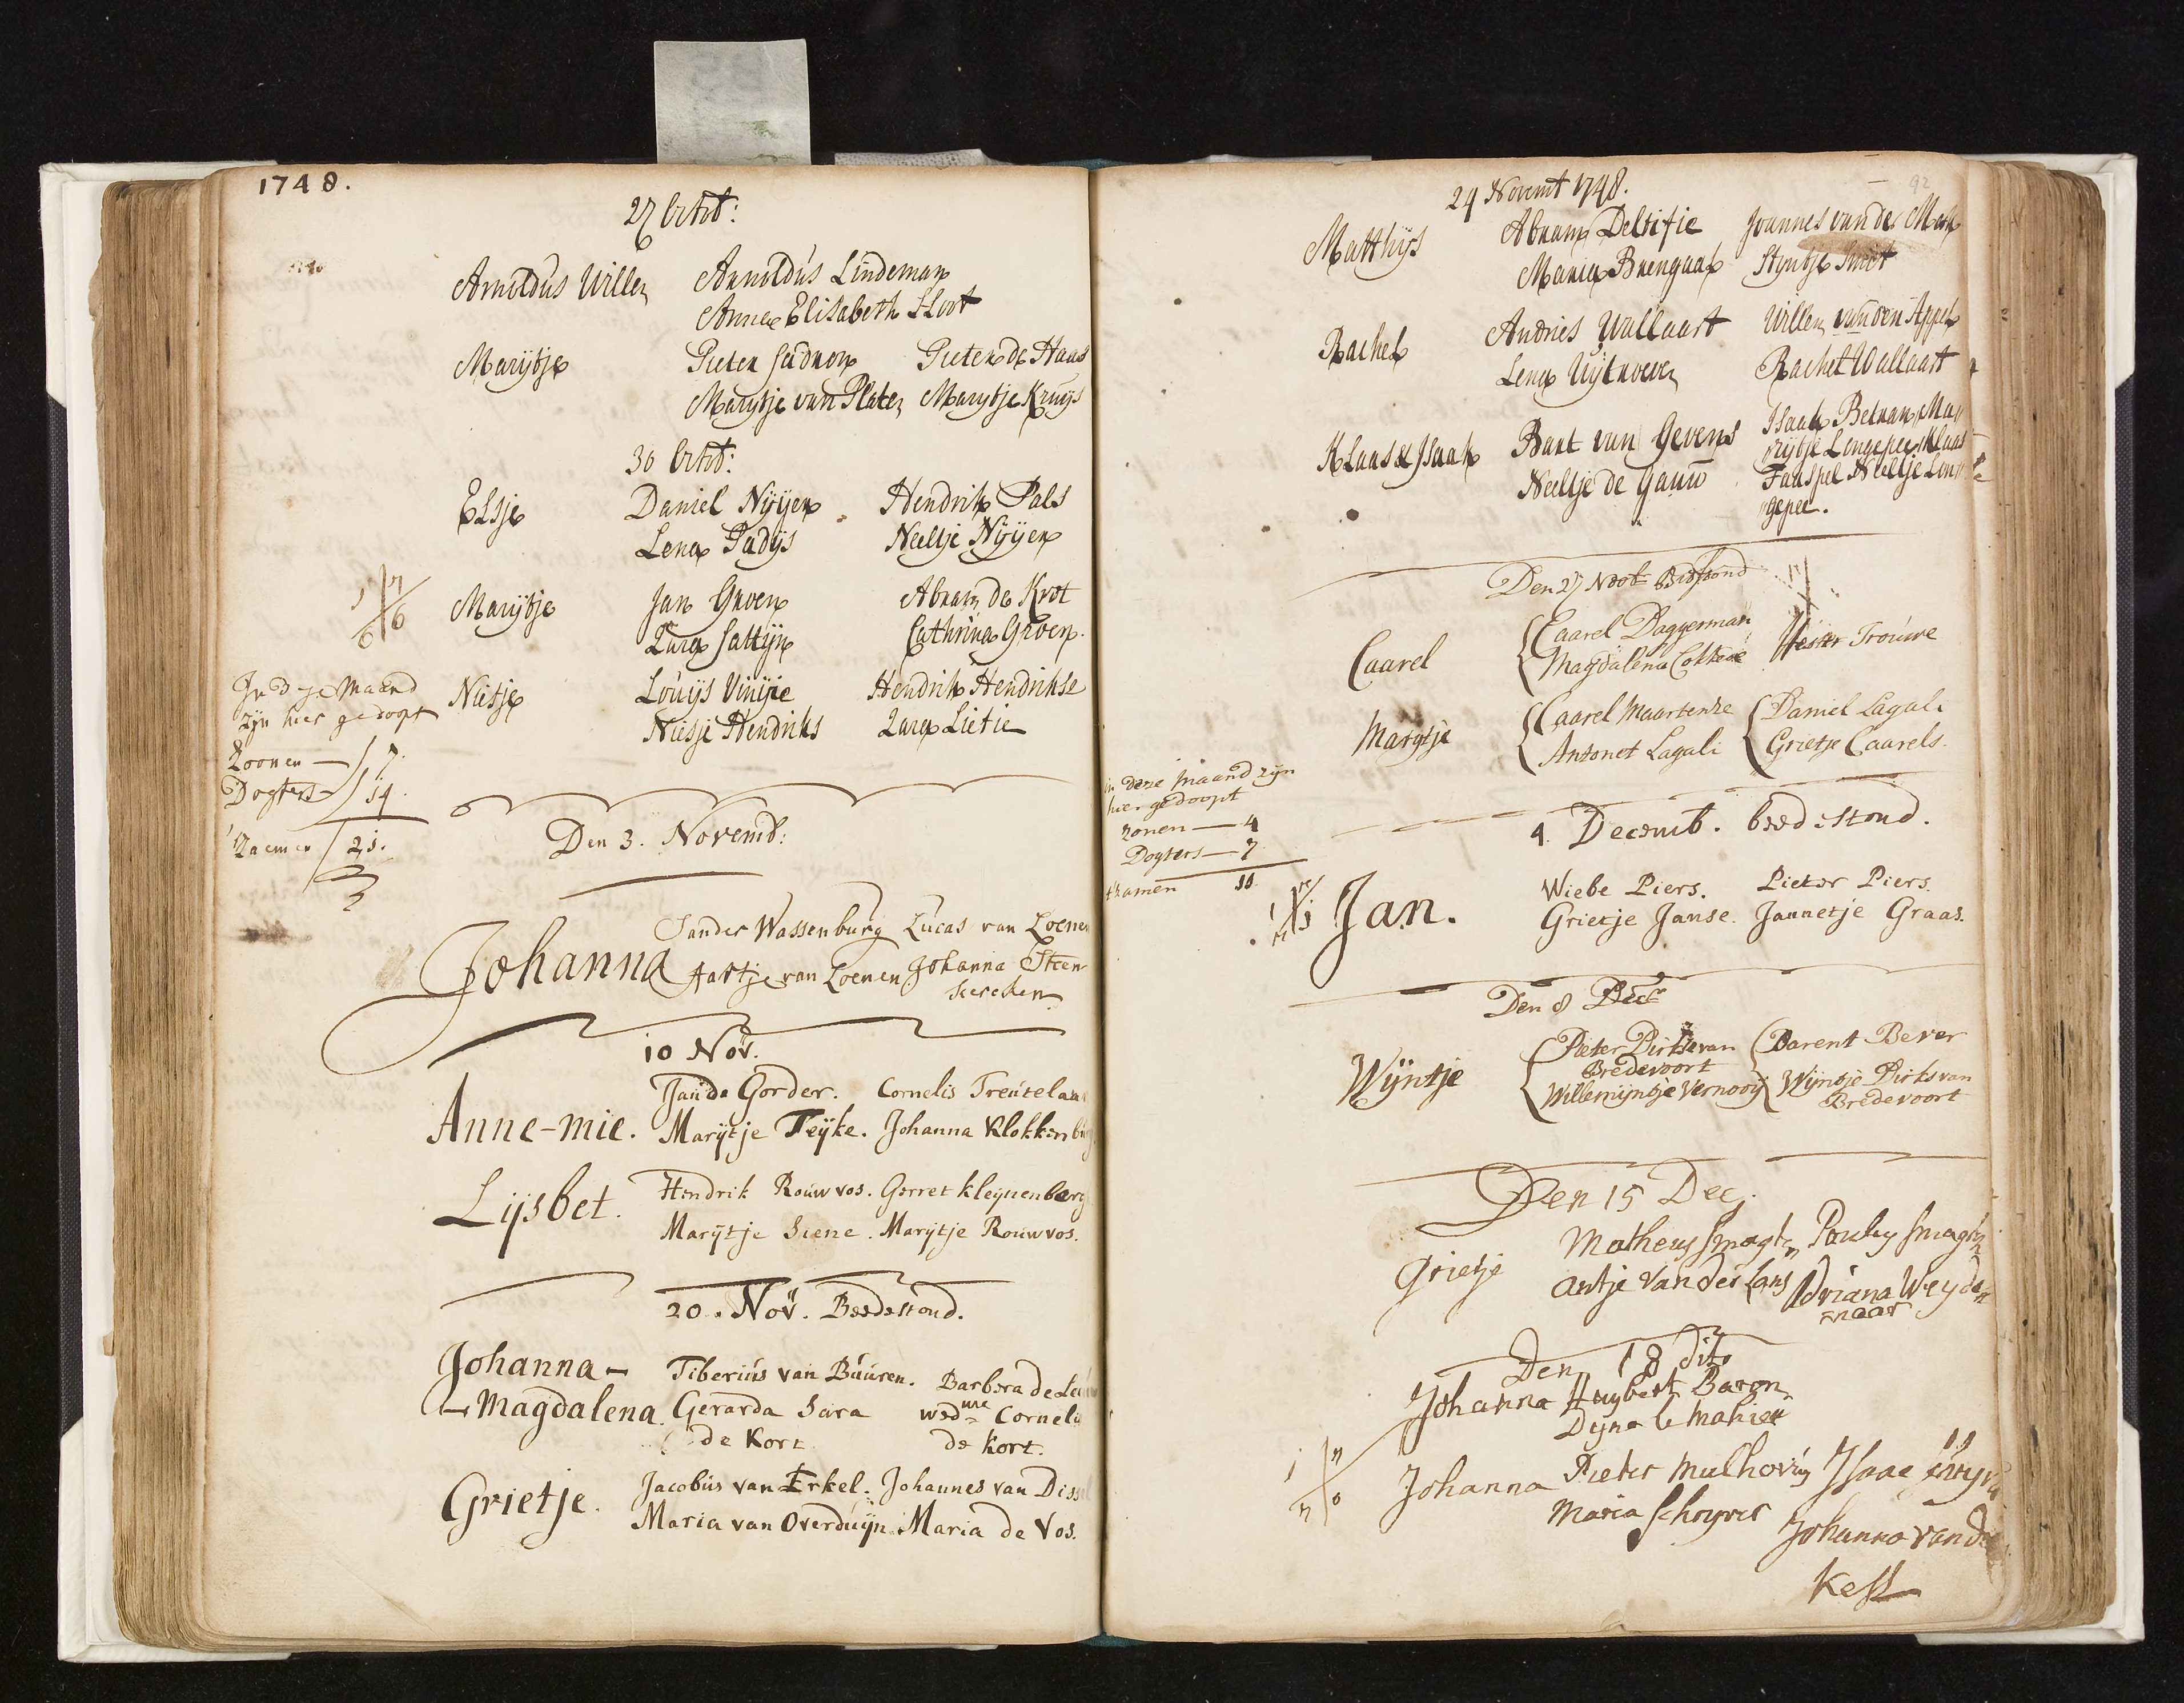 1748.
27 Octob:
Arnoldus Willem Arnoldus Lindeman
Anna Elisabeth Sloot
Marijtje Pieter Pieter de Haas
Marijtje van Platen Marijtje Kruijs
30 Octob:
Elsje Daniel Nijijen Hendrik Pals
Lena Padijs Neeltje Nijijen
Marijtje Jan Groen Abram de Krot
Zara Cathrina Groen.
In dese Maand
zijn hier gedoopt
Zoonen — 7.
Dogters 14.
Zaemen 21.
Nietje Louijs Vinijie Hendrik Hendrikse
Niesje Hendriks Zara Lietie
Den 3. Novemb:
Johanna Sander Wassenburg Lucas van Loenen
Aartje van Loenen Johanna Steen
kereken
10 Nov.
Anne-mie. Jan de Gorder. Cornelis Treutelaa
Marijtje Teijke. Johanna Klokkenbur
Lijsbet. Hendrik Rouwvos. Gerret Kleijnenberg
Marijtje Siene. Marijtje Rouwvos.
20. Nov. Beedestond.
Johanna – Tiberius van Buuren. Barbera de
– Magdalena. Gerarda Sara wedue Cornelis
de Kort de Kort.
Grietje. Jacobus van Erkel. Johannes van Diss
Maria van Overduijn Maria de Vos.
92
24 Novemb 1748.
Matthijs Abram Deltifie Joannes van der Mark
Maria Brengaar Stijntje Smit
Rachel Andries Wallaart Willem van den Appel
Lena Uijtroever Rachel Wallaart
Klaas & Isaak Bart van Gevens Isaak Betram Ma
Neeltje de Gauw rijtje Longepee, Klaas
Faassel Neeltje Lon
gepee.
Den 27 Novb Bidstond
Caarel Caarel Daggerman Hester Trouwe
Magdalena
Marytje Caarel Maartense Daniel Lagali
Antonet Lagali Grietje Caarels.
in deze maand zijn
hier gedoopt
zonen — 4
Dogters — 7
tzamen 11
4. Decemb. beedestond.
Jan. Wiebe Piers. Pieter Piers.
Grietje Janse. Jannetje Graas.
Den 8 Decr
Wijntje Pieter Dirkse van Barent Bever
Bredevoort
Willemijntje Vernooij Wijntje Dirks van
Bredevoort
Den 15 Dec.
Grietje Matheus Smagt Paulus Smagt
Antje van der Lans Adriana Weyde
naar
Den 18 dito
Johanna Huybert Baron
Dyna le Mahieu
Johanna Pieter Mulhovius Isaac
Maria Schryver Johanna van d
Kess